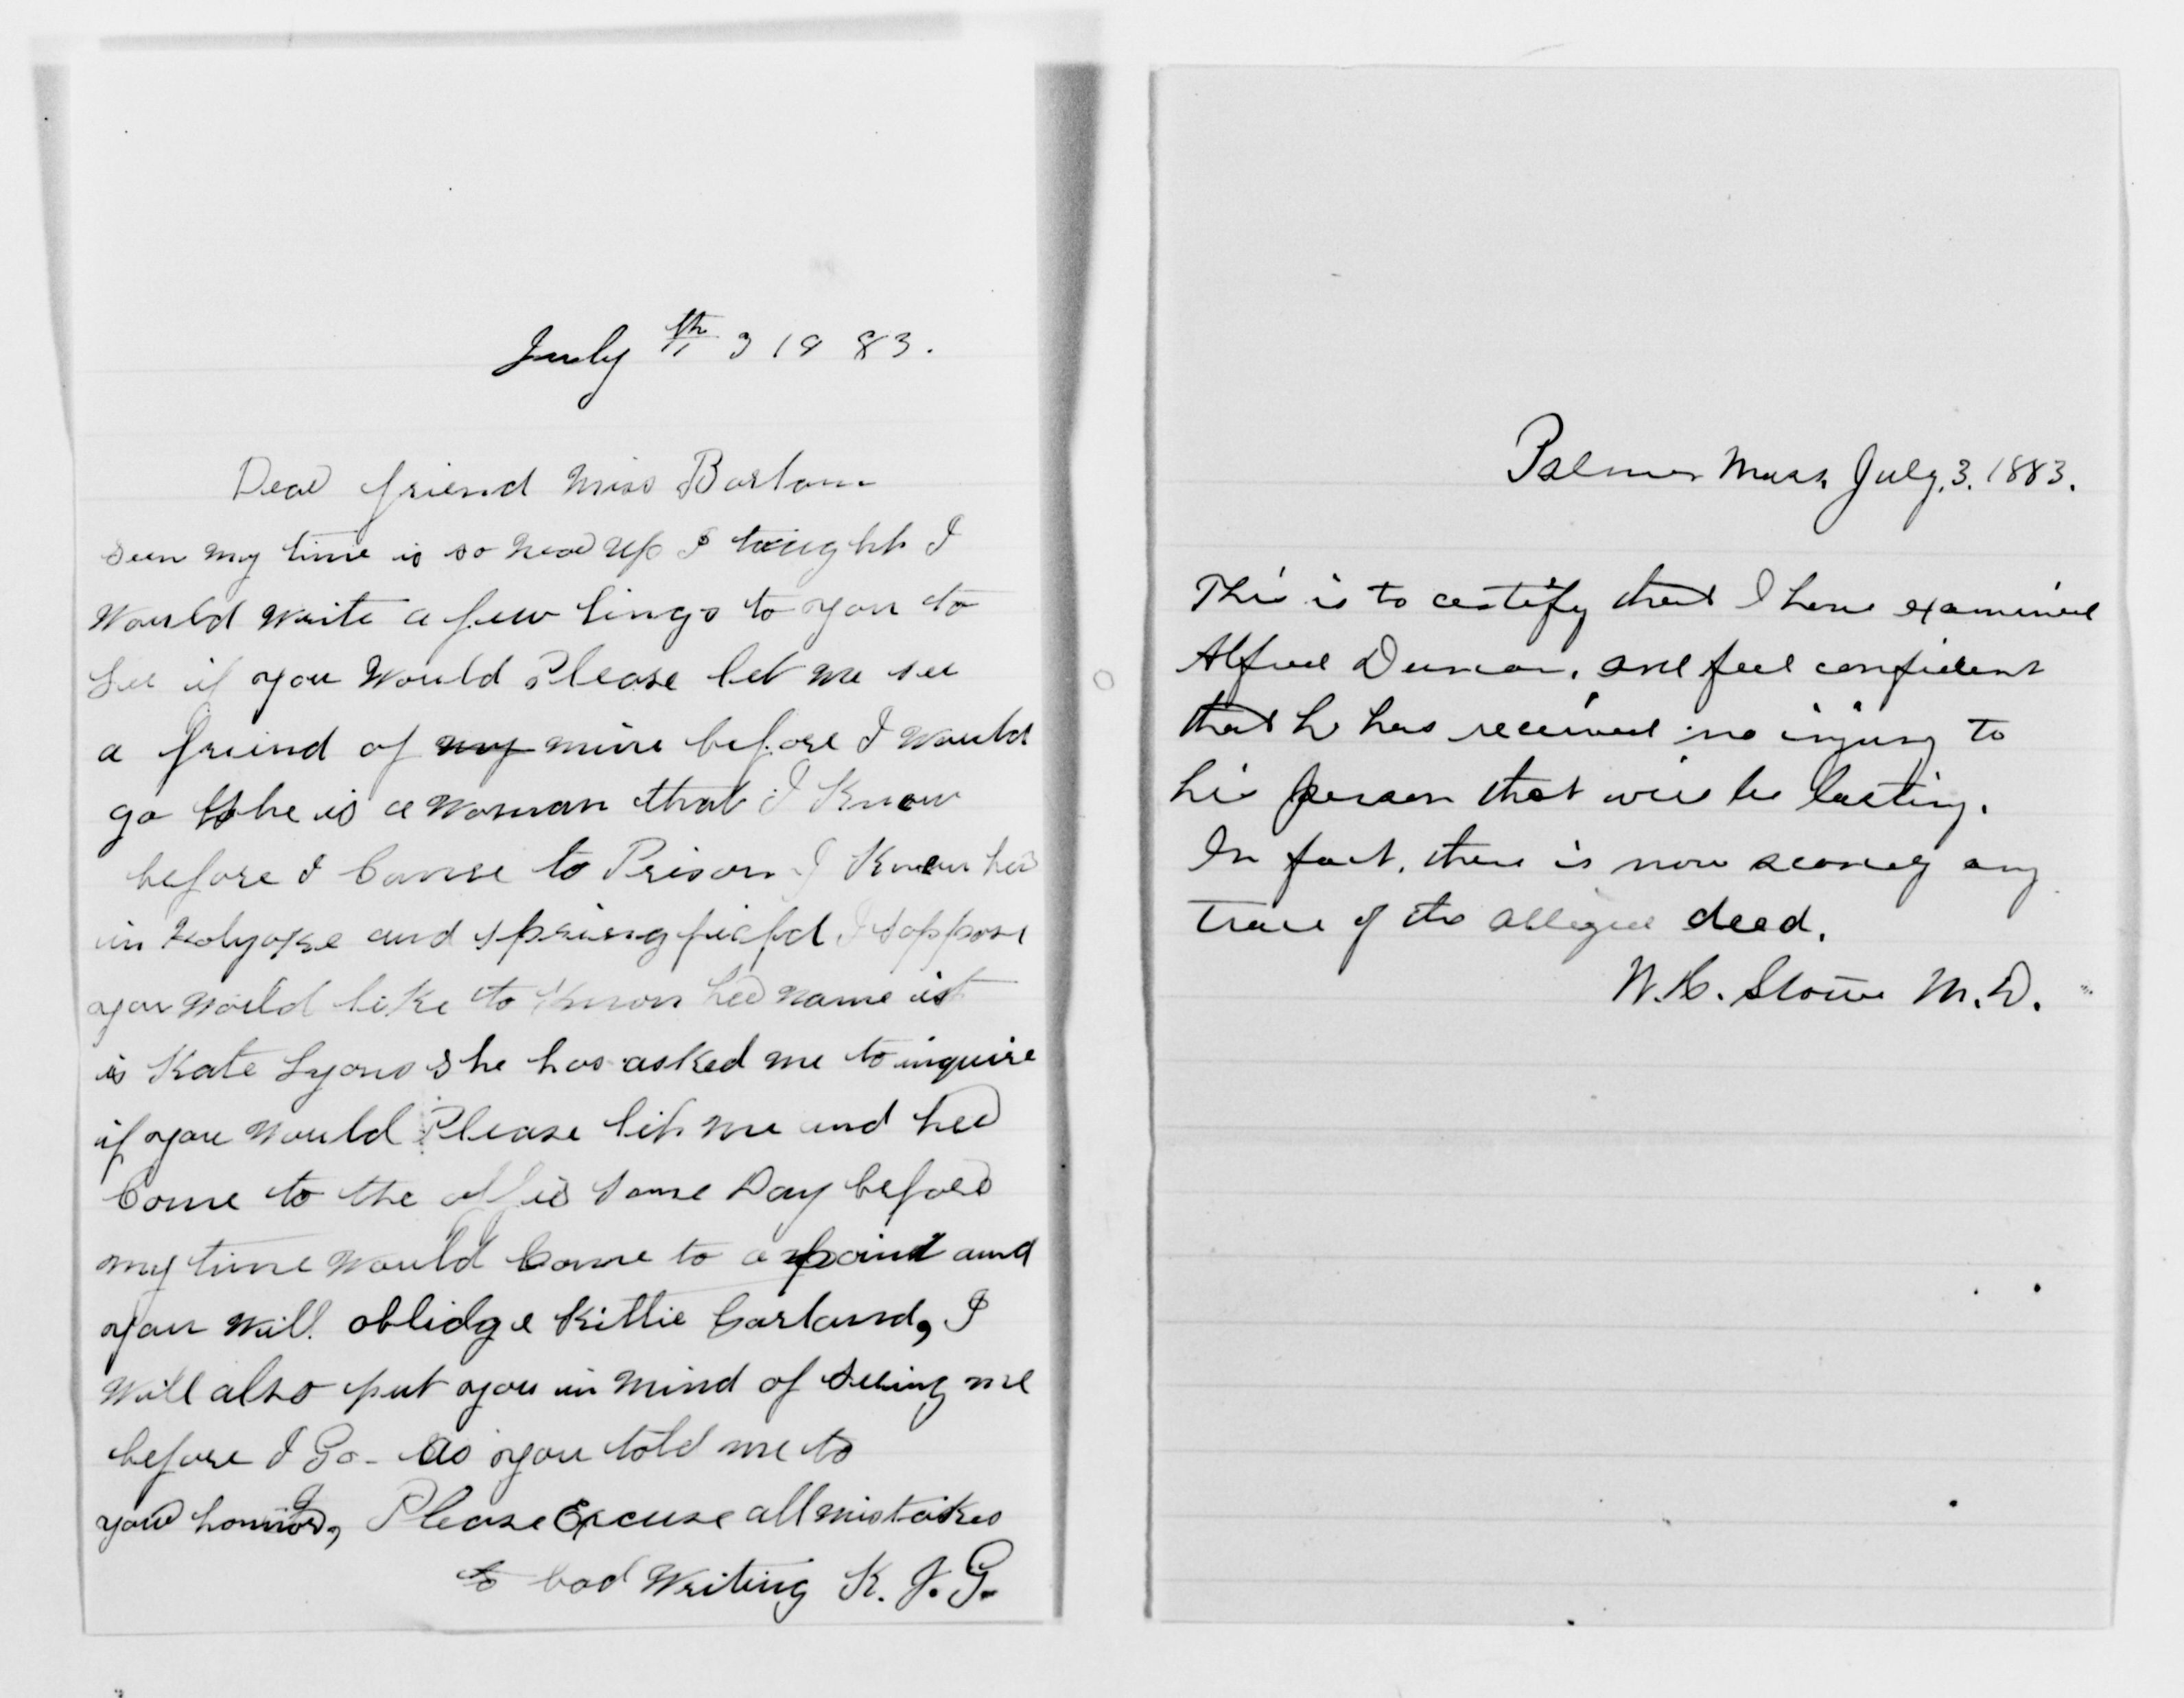 July th 3 1883.
Dear friend Miss Barton
seen my time is so near up I tought I
Would write a few lings to you to
see if you Would Please let me see
a freind of my mine before I would
go she is a woman that I Know
before I Came to Prison I Knew her
in Holyoke and springfield I soppose
you would like to know her name ist
is Kate Lyons she has asked me to inquire
if you would Please let me and her
Come to the offis some Day before
my time would Come to a point and
you will oblidge Kittie Garland, I
Will also put you in mind of seeing me
before I Go - as you told me to
your honnor, Please Excuse all mistakes
to bad Writing K. J. G.
Palmer Mass, July, 3. 1883.
This is to certify that I have examined
Alfred Duncan, and feel confident
that he has received no injury to
his person that will be lasting.
In fact, there is now scarcely any
trace of the alleged deed.
W. H. Stowe M.D.